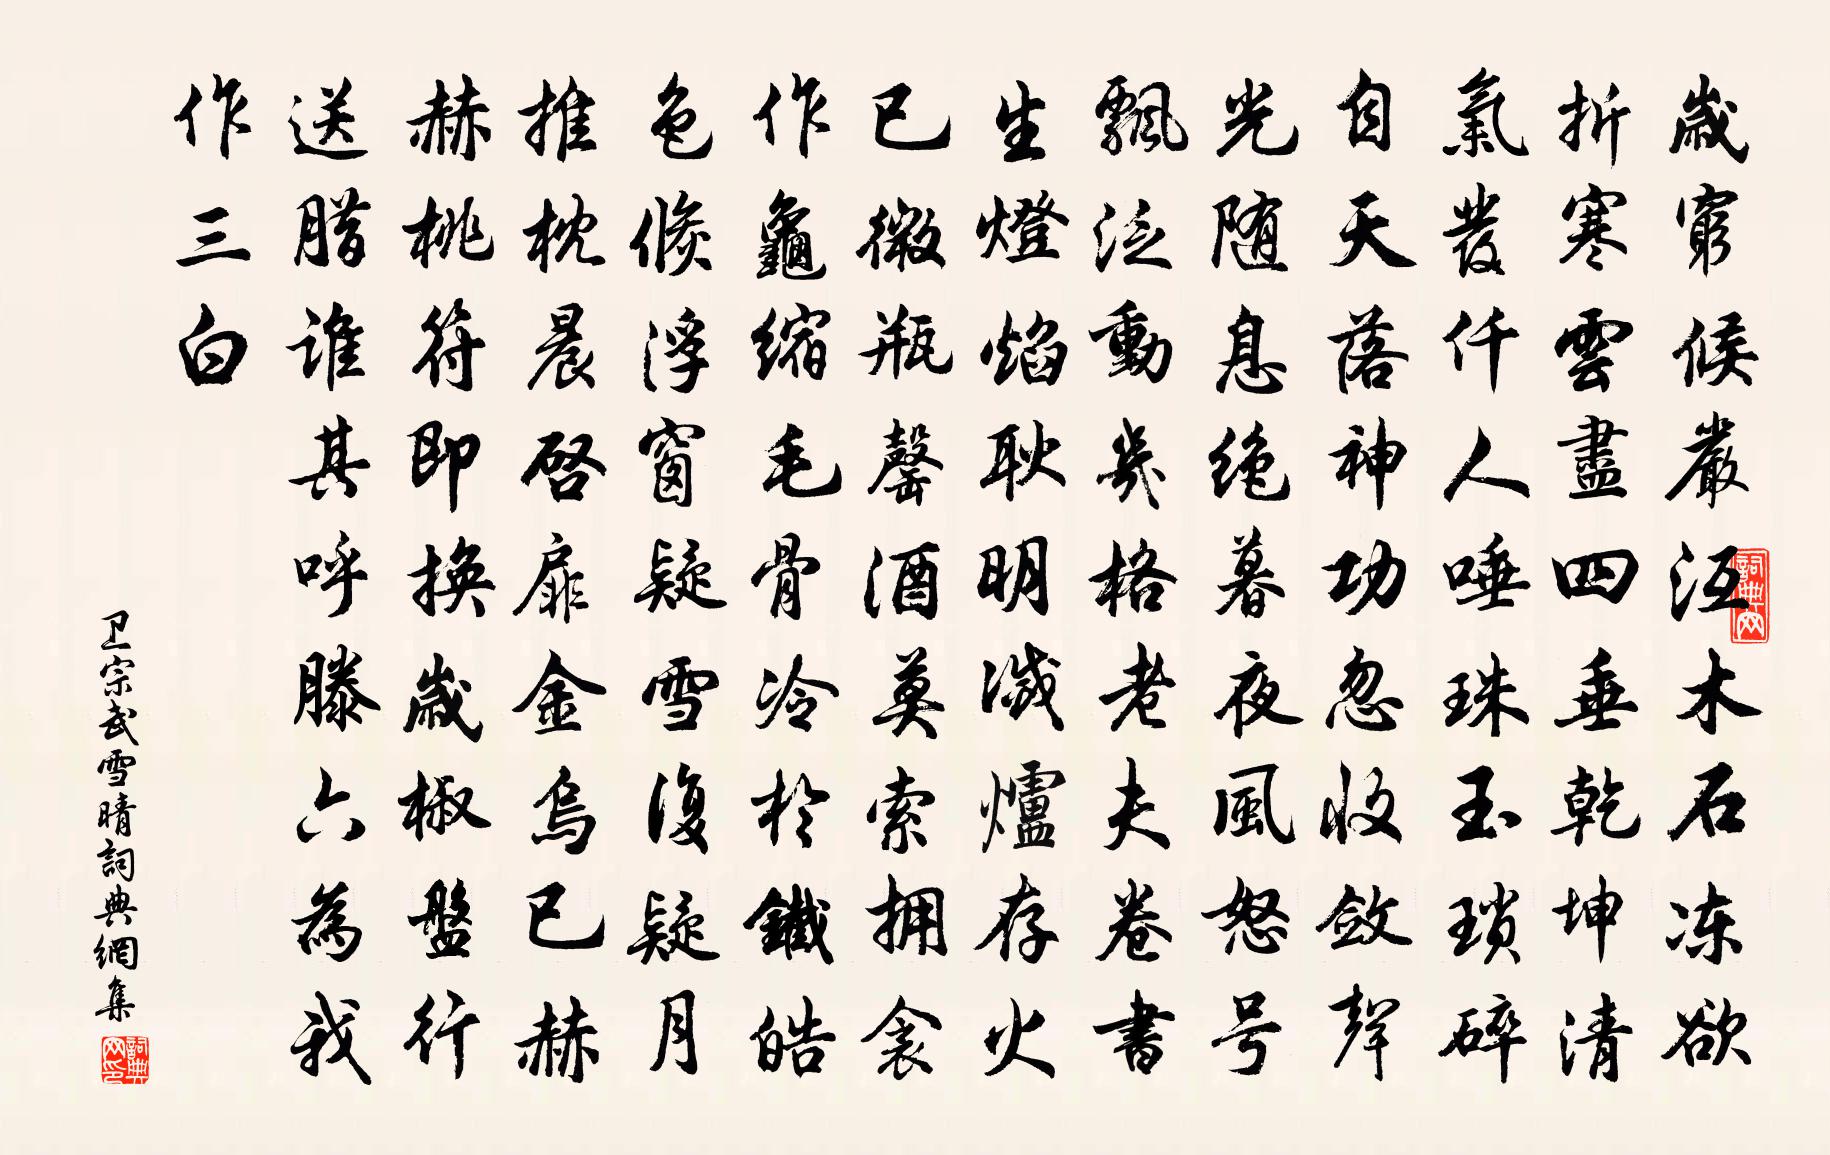 歲窮候嚴沍木石冻欲
折寒雲盡四垂乾坤清
氣發仟人唾珠玉瑣碎
自天落神功忽收斂聲
光随息绝暮夜風怒号
飄泛動幾格老夫卷書
生燈焰耿明滅爐存火
已微瓶罄酒莫索拥衾
作龜縮毛骨冷於鐵皓
色倏浮窗疑雪復疑月
推枕晨啓扉金烏已赫
赫桃符即换歲椒盤行
送腊谁其呼滕六為我
作三白
卫宗武雪晴詞典網集
詞典网
詞典网印